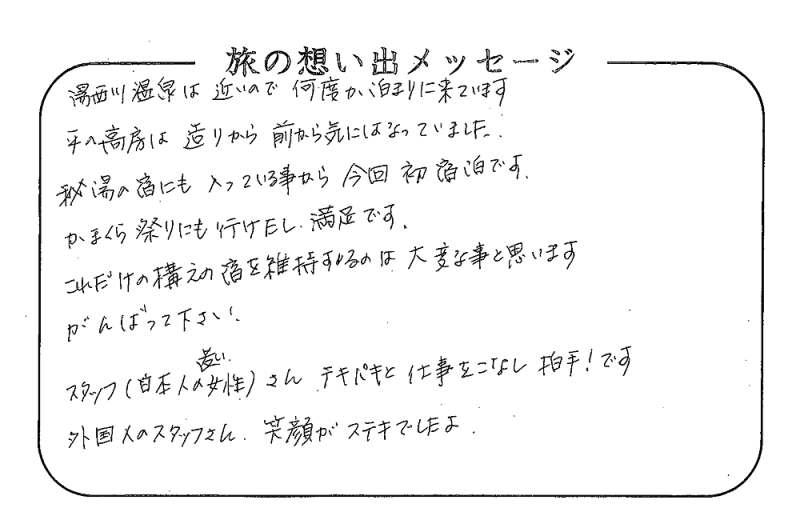 旅の想い出メッセージ
湯西川温泉は 近いので 何度か泊まりに来ています
平の高房は 造りから 前から気にはなっていました.
秘湯の宿にも 入っている事から 今回 初 宿泊です.
かまくら祭りにも行けたし. 満足です.
これだけの構えの宿を維持するのは 大変な事と思います
がんばって下さい.
若い
スタッフ(日本人の女性)さん テキパキと 仕事をこなし 拍手!です
外国人のスタッフさん. 笑顔が ステキでしたよ.